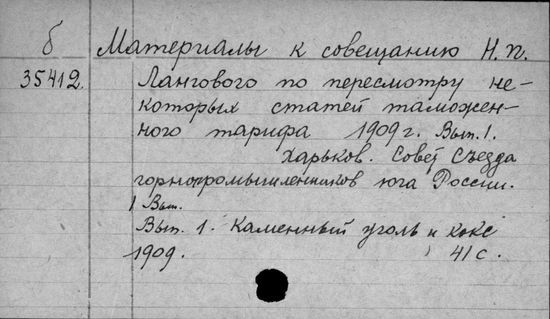 б Материалы к совещанию Н.П.
35412. Лангового по пересмотру не-
которых статей таможен-
ного тарифа 1909 г. Вып. 1.
Харьков. Совет Съезда
горнопромышленников юга России.
1 Вып.
Вып. 1. Каменный уголь и кокс
1909. 41 с.